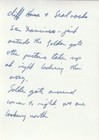 Cliff House & Seal rocks
San Francisco - just
outside the Golden gate
other picture taken up
at right looking this
way.
Golden gate around
corner to right as we
looking north